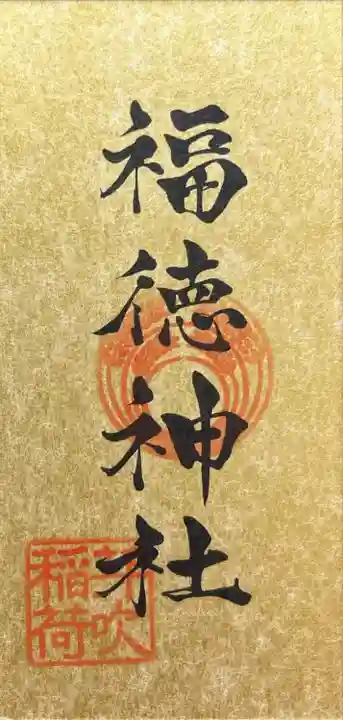 福徳神社
芽吹
稲荷